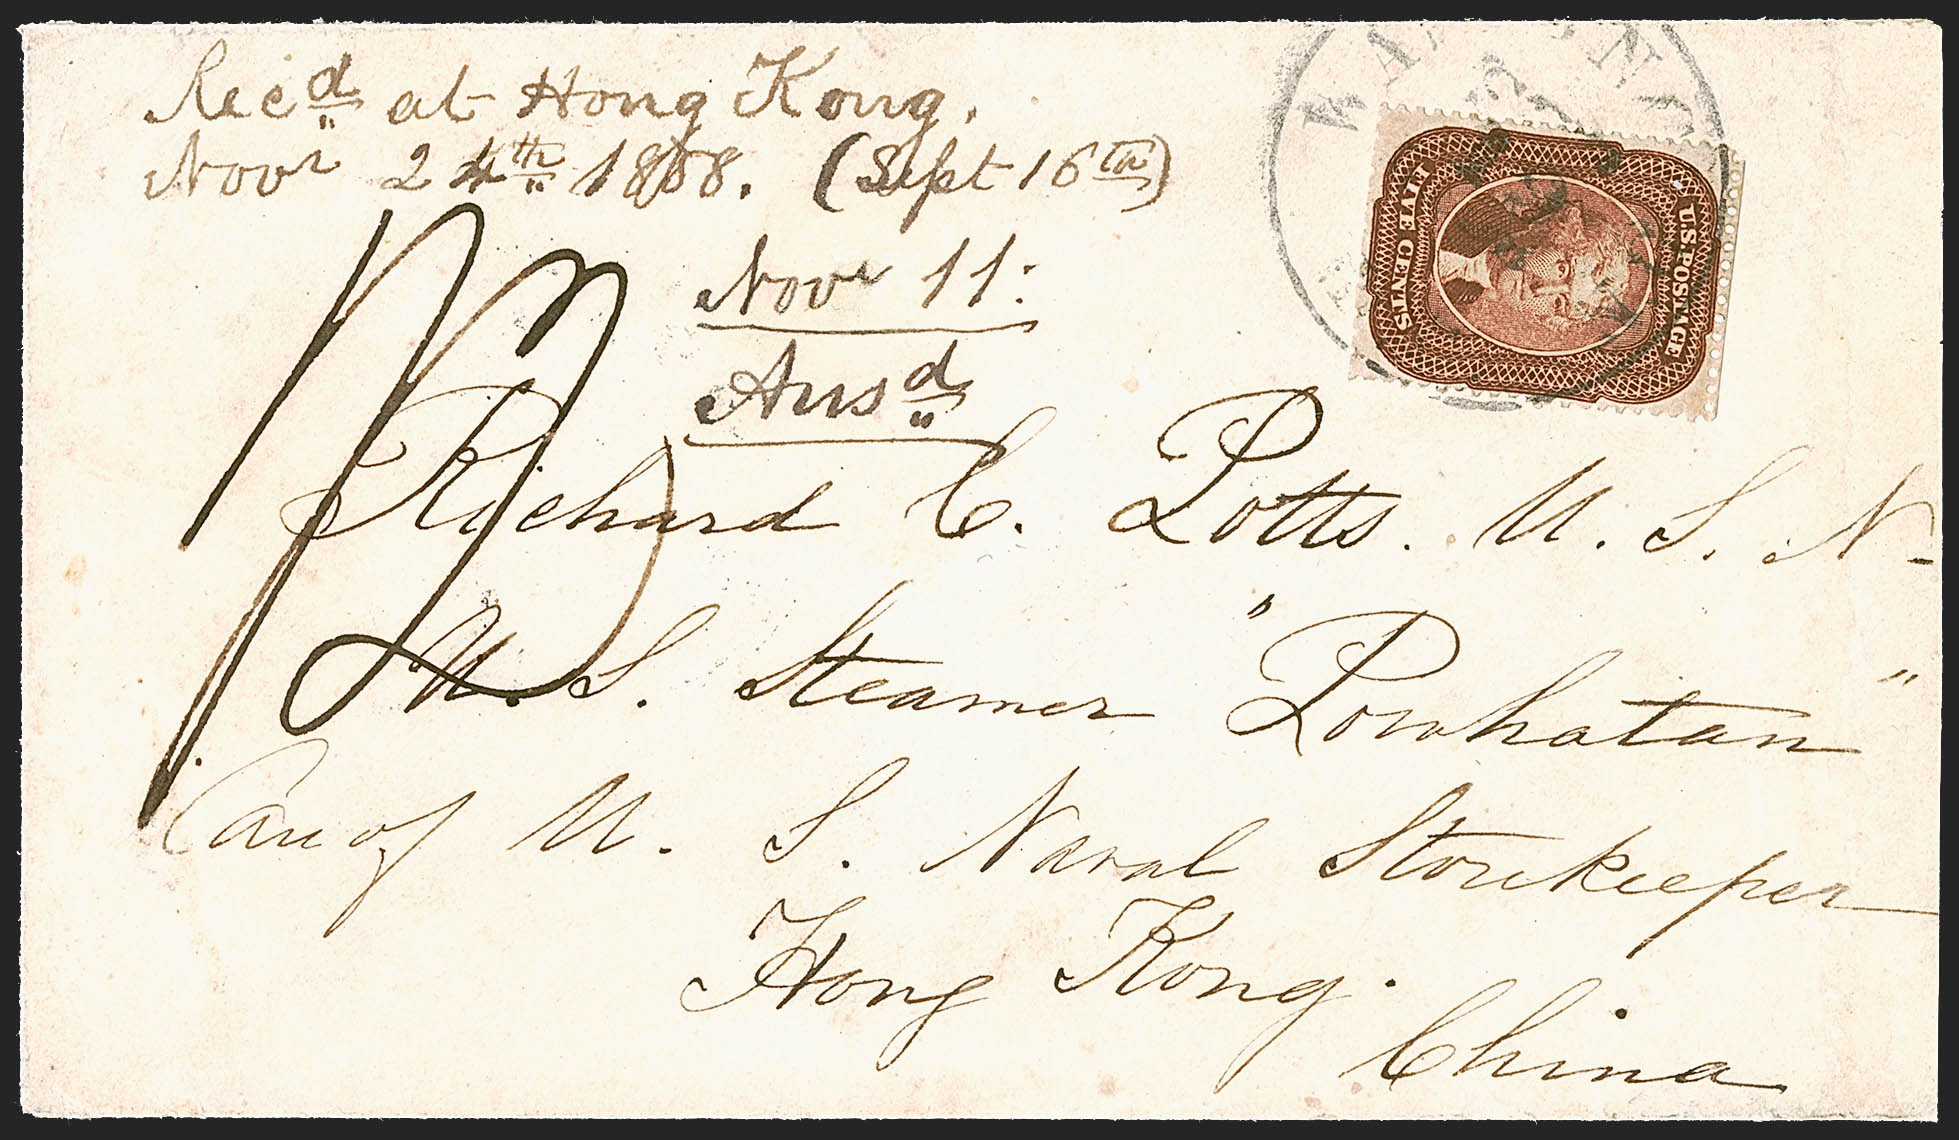 Rec.d at Hong Kong.
Novr 24th 1858. (Sept 16th)
Novr 11:
Ansd
U.S. POSTAGE
FIVE CENTS
Richard C. Potts. U. S. N-
U. S. Steamer "Powhatan"
Care of U. S. Naval Storekeeper
Hong Kong.
China